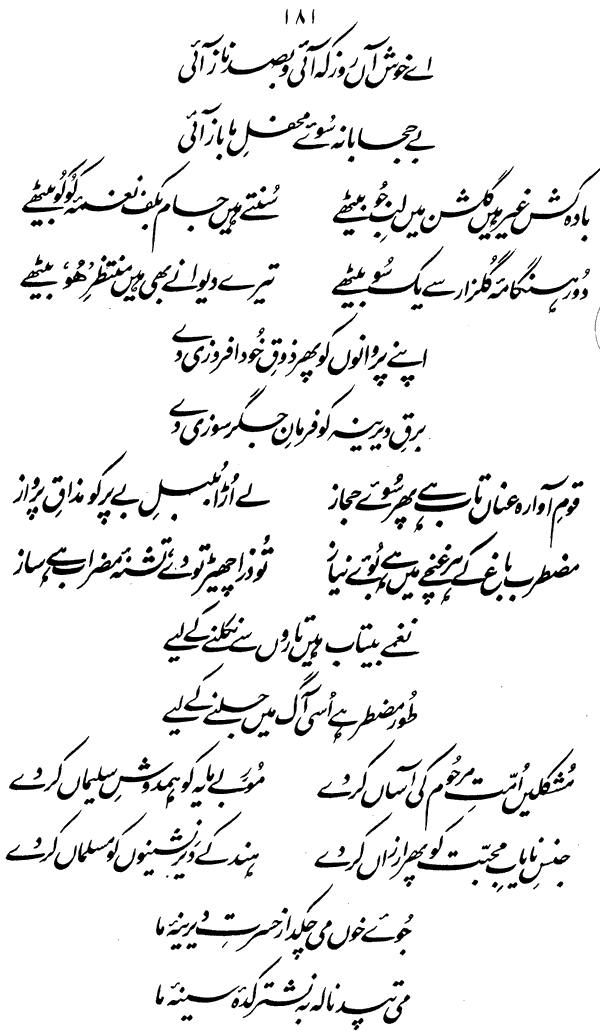 ۱۸۱
اے خوش آں روز کہ آئی و بصد ناز آئی
بے حجابانہ سُوئے محفلِ ما باز آئی
بادہ کش غیر ہیں گلشن میں لبِ جُو بیٹھے سُنتے ہیں جام بکف نغمۂ کُو کُو بیٹھے
دُور ہنگامۂ گُلزار سے یک سُو بیٹھے تیرے دیوانے بھی ہیں منتظرِ ’ھُو‘ بیٹھے
اپنے پروانوں کو پھر ذوقِ خُود افروزی دے
برقِ دیرینہ کو فرمانِ جگر سوزی دے
قومِ آوارہ عناں تاب ہے پھر سُوئے حجاز لے اُڑا بُلبلِ بے پر کو مذاقِ پرواز
مضطرب باغ کے ہر غنچے میں ہے بُوئے نیاز تُو ذرا چھیڑ تو دے، تشنۂ مضراب ہے ساز
نغمے بیتاب ہیں تاروں سے نکلنے کے لیے
طُور مضطر ہے اُسی آگ میں جلنے کے لیے
مُشکلیں اُمّتِ مرحُوم کی آساں کر دے مُورِ بے مایہ کو ہمدوشِ سلیماں کر دے
جنسِ نایابِ محبّت کو پھر ارزاں کر دے ہند کے دَیر نشینوں کو مسلماں کر دے
جُوئے خوں می چکد از حسرتِ دیرینۂ ما
می تپد نالہ بہ نشتر کدۂ سینۂ ما